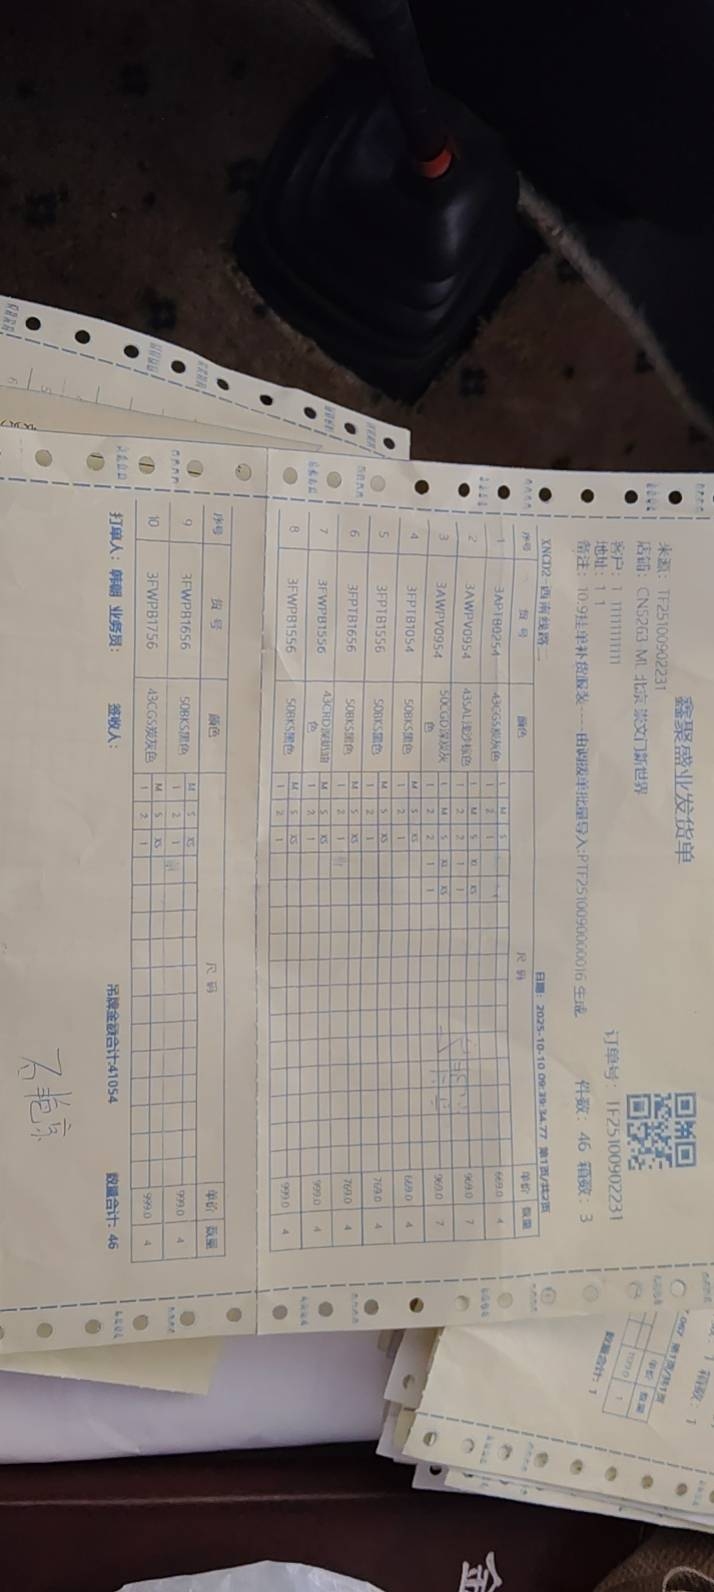 鑫聚盛业发货单
来源: TF25100902231
订单号: TF25100902231
店铺: CN5263 ML 北京 崇文门新世界
客户: 1 11111111111
地址: 1 1
备注: 10.9挂单补货服装----由调拨单批量导入:PTF2510090000016 生成
件数: 46 箱数: 3
XNCD2-西南线路
日期: 2025-10-10 09:39:34.77 第1页/共2页
序号 货 号 颜色 尺 码 单价 数量
L M S
1 3APTB0254 43CGS炭灰色 1 2 1 669.0 4
L M S XL XS
2 3AWPV0954 43SAL浅沙棕色 1 2 2 1 1 969.0 7
L M S XL XS
3 3AWPV0954 50CGD深炭灰色 1 2 2 1 1 969.0 7
M S XS
4 3FPTB1054 50BKS黑色 1 2 1 669.0 4
M S XS
5 3FPTB1556 50BKS黑色 1 2 1 769.0 4
M S XS
6 3FPTB1656 50BKS黑色 1 2 1 769.0 4
M S XS
7 3FWPB1556 43CRD深奶油色 1 2 1 999.0 4
M S XS
8 3FWPB1556 50BKS黑色 1 2 1 999.0 4
序号 货 号 颜色 尺 码 单价 数量
M S XS
9 3FWPB1656 50BKS黑色 1 2 1 999.0 4
M S XS
10 3FWPB1756 43CGS炭灰色 1 2 1 999.0 4
打单人: 韩 业务员: 签收人: 吊牌金额合计:41054 数量合计: 46
第1页/共1页
单价 数量
1
数量合计: 1